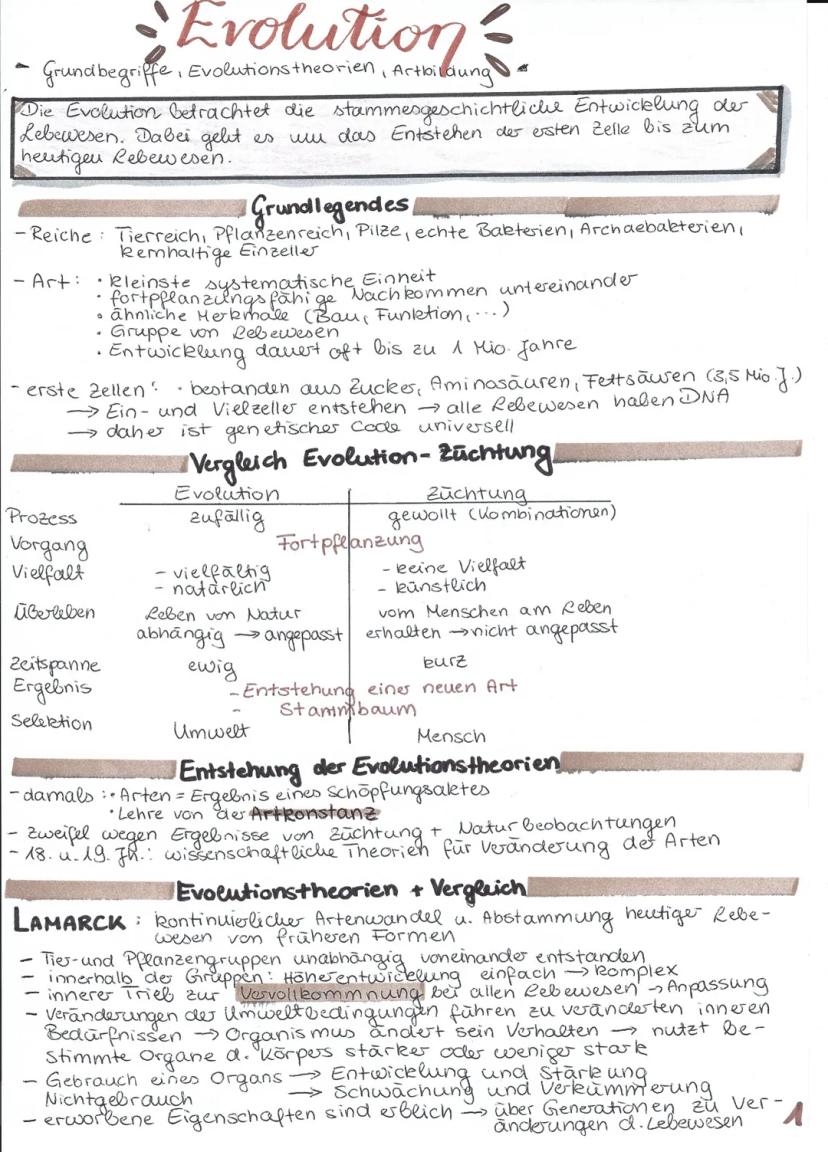 Evolution
- Grundbegriffe, Evolutionstheorien, Artbildung -
Die Evolution betrachtet die stammesgeschichtliche Entwicklung der
Lebewesen. Dabei geht es um das Entstehen der ersten Zelle bis zum
heutigen Lebewesen.
Grundlegendes
- Reiche: Tierreich, Pflanzenreich, Pilze, echte Bakterien, Archaebakterien,
kernhaltige Einzeller
- Art: • kleinste systematische Einheit
• fortpflanzungsfähige Nachkommen untereinander
• ähnliche Merkmale (Bau, Funktion, ...)
• Gruppe von Lebewesen
• Entwicklung dauert oft bis zu 1 Mio. Jahre
- erste Zellen: • bestanden aus Zucker, Aminosäuren, Fettsäuren (3,5 Mio. J.)
→ Ein- und Vielzeller entstehen → alle Lebewesen haben DNA
→ daher ist genetischer Code universell
Vergleich Evolution-Züchtung
Evolution Züchtung
Prozess zufällig gewollt (Kombinationen)
Vorgang Fortpflanzung
Vielfalt - vielfältig - keine Vielfalt
- natürlich - künstlich
Überleben Leben von Natur vom Menschen am Leben
abhängig → angepasst erhalten → nicht angepasst
Zeitspanne ewig kurz
Ergebnis - Entstehung einer neuen Art
- Stammbaum
Selektion Umwelt Mensch
Entstehung der Evolutionstheorien
- damals: • Arten = Ergebnis eines Schöpfungsaktes
• Lehre von der Artkonstanz
- Zweifel wegen Ergebnisse von Züchtung + Naturbeobachtungen
- 18. u. 19. Jh.: wissenschaftliche Theorien für Veränderung der Arten
Evolutionstheorien + Vergleich
LAMARCK: kontinuierlicher Artenwandel u. Abstammung heutiger Lebe-
wesen von früheren Formen
- Tier- und Pflanzengruppen unabhängig voneinander entstanden
- innerhalb der Gruppen: Höherentwicklung einfach → komplex
- innerer Trieb zur Vervollkommnung bei allen Lebewesen → Anpassung
- Veränderungen der Umweltbedingungen führen zu veränderten inneren
Bedürfnissen → Organismus ändert sein Verhalten → nutzt be-
stimmte Organe d. Körpers stärker oder weniger stark
- Gebrauch eines Organs → Entwicklung und Stärkung
Nichtgebrauch → Schwächung und Verkümmerung
- erworbene Eigenschaften sind erblich → über Generationen zu Ver-
änderungen d. Lebewesen
1